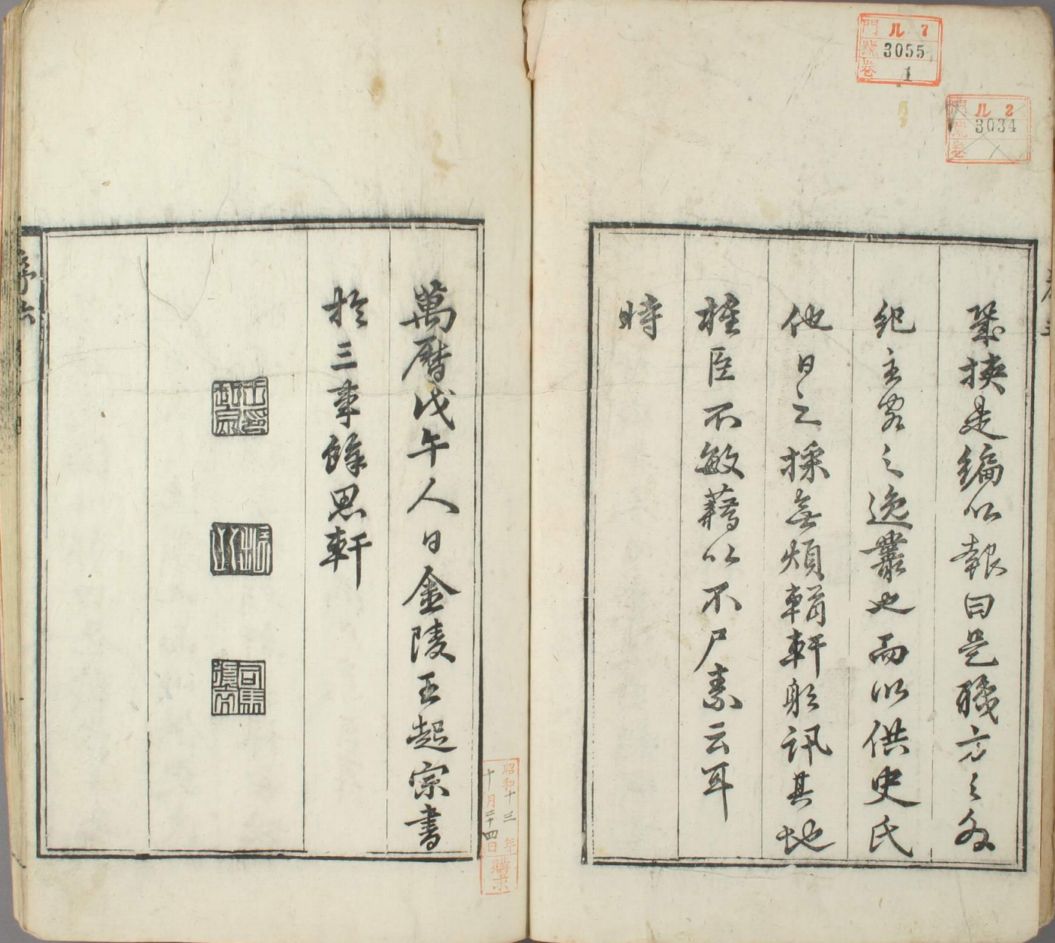 挾是編以報曰是職方之外
紀主客之逸叢也而以供史氏
他日之採無煩輶軒躬訊其地
榷臣不敏藉以不尸素云耳
時
萬曆戊午人日金陵王起宗書
於三事餘思軒
王印起宗
司馬
序六
門號卷
ル 7
3055
1
門號卷
ル 2
3034
昭和十三年
十月二十四日
購求